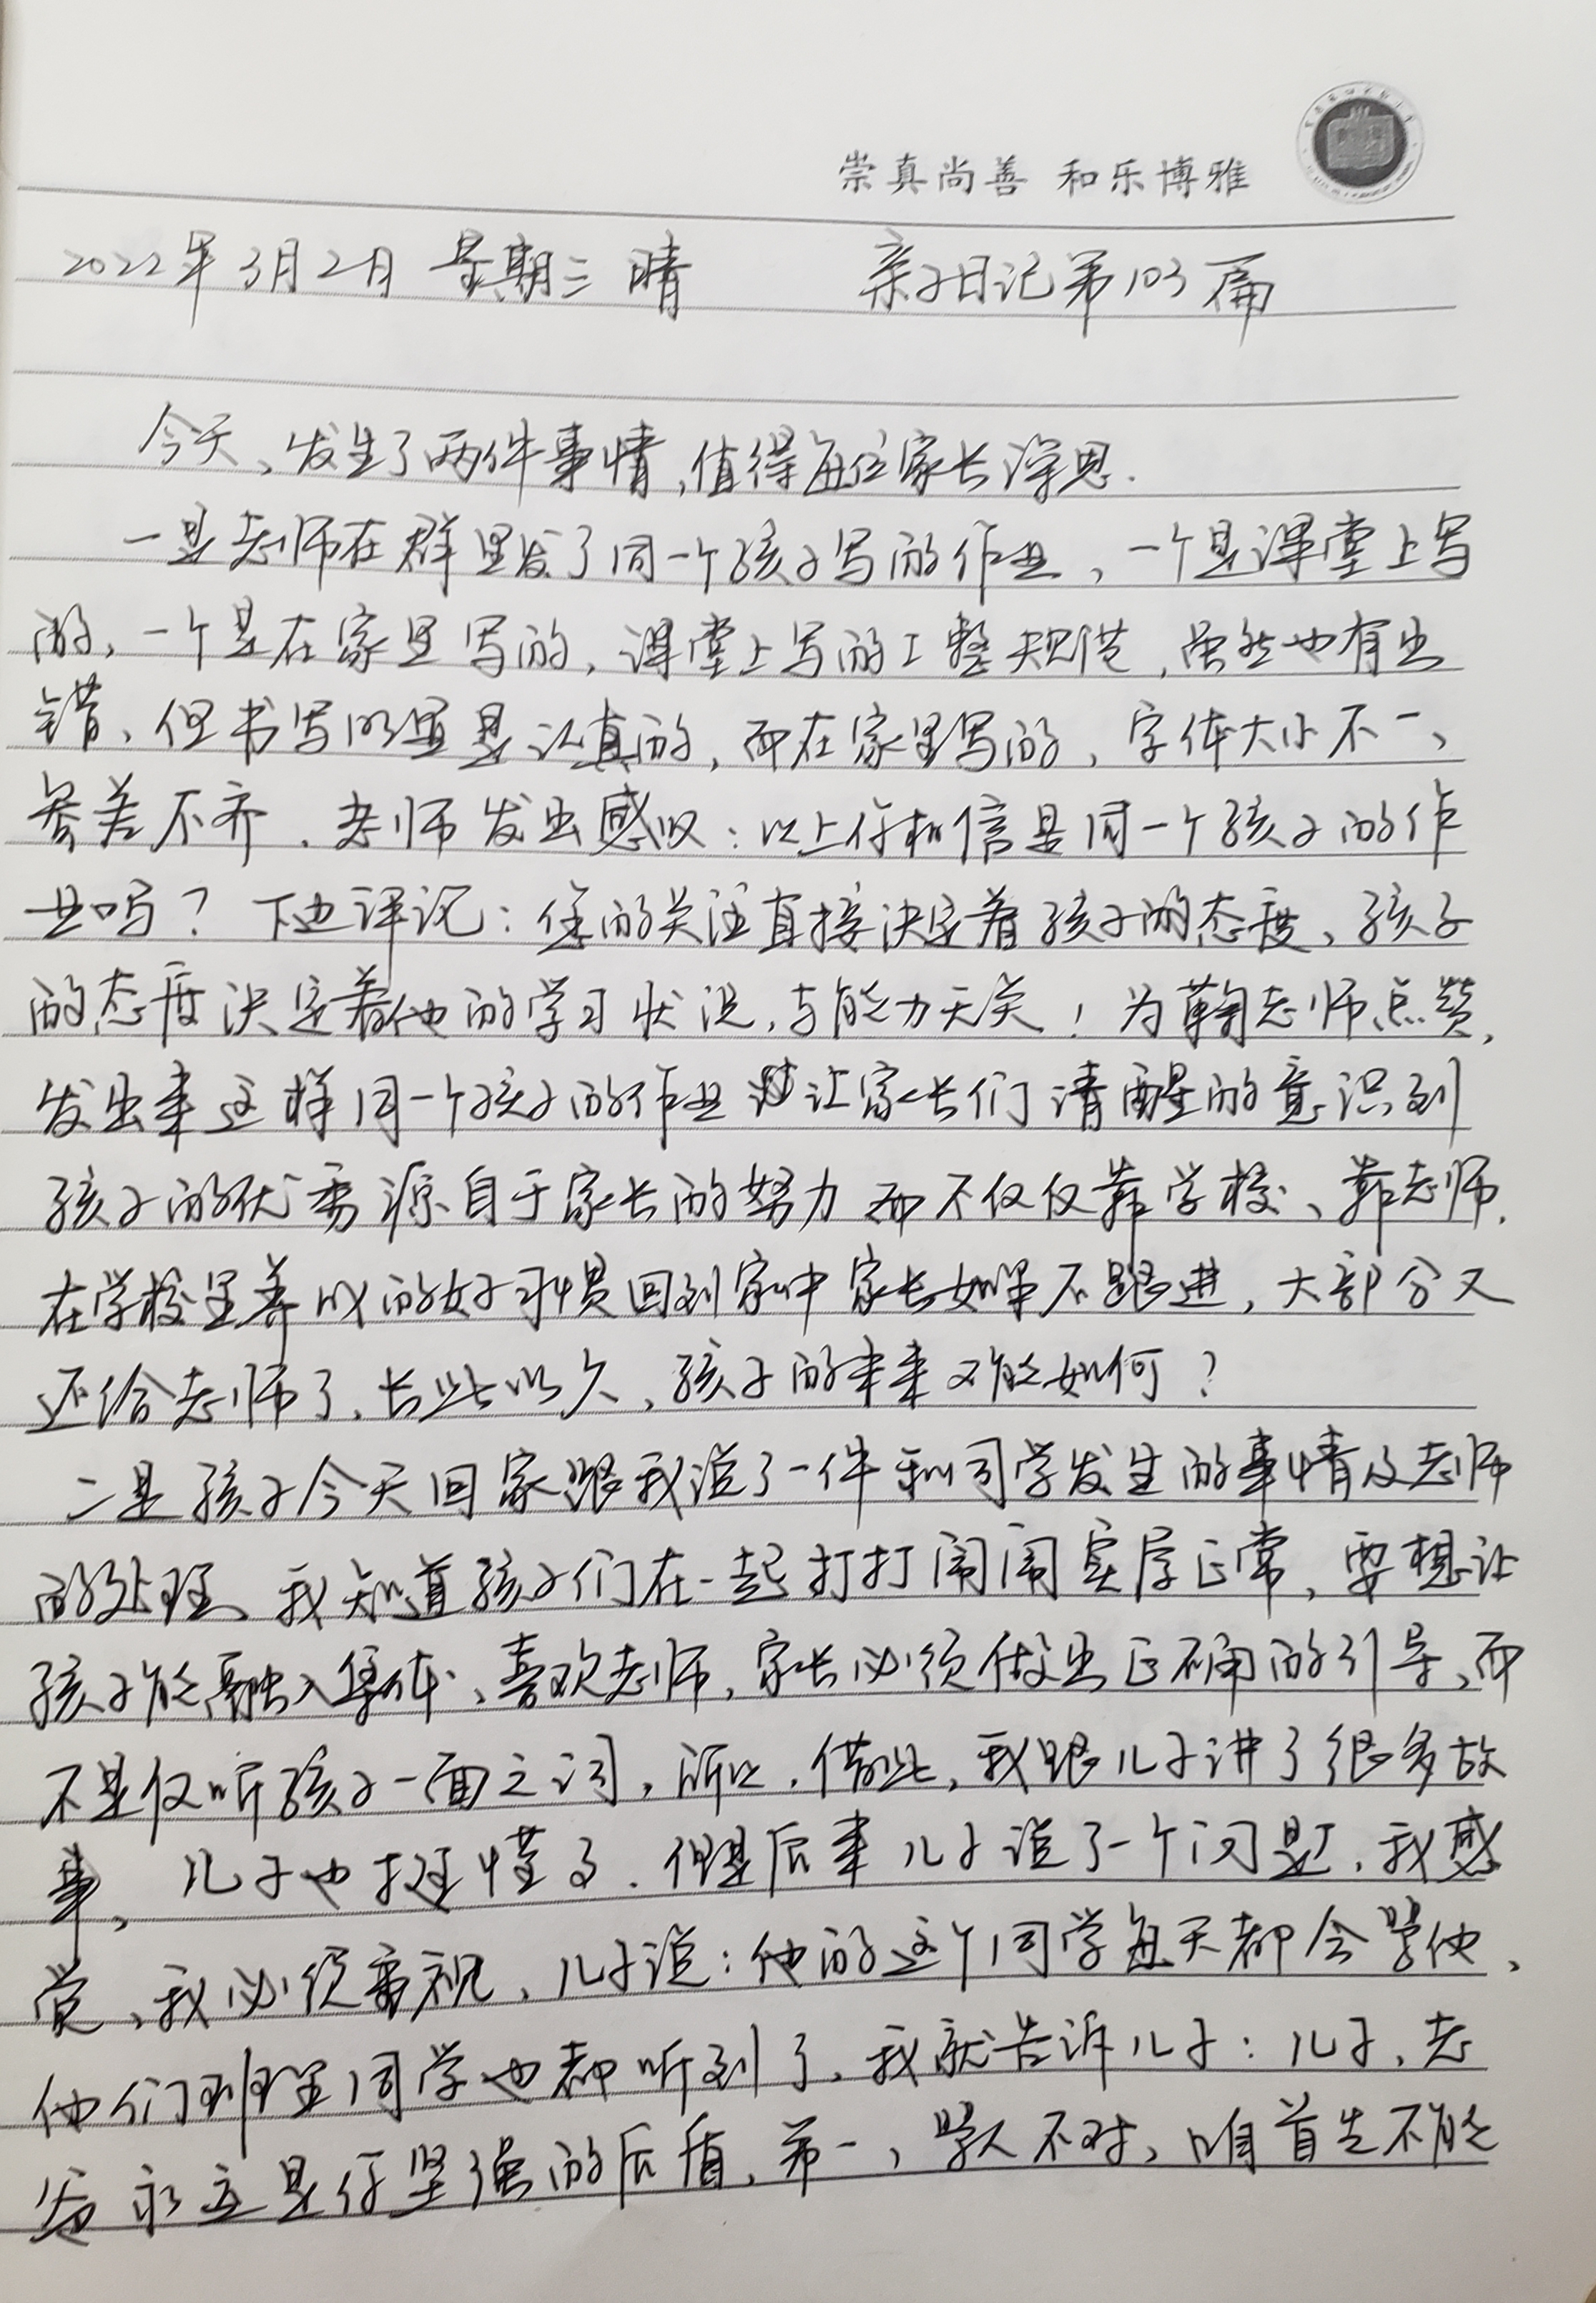 崇真尚善 和乐博雅
2022年3月2日 星期三 晴 亲子日记第103篇
今天、发生了两件事情,值得每位家长深思.
一是老师在群里发了同一个孩子写的作业、一个是课堂上写
的、一个是在家里写的,课堂上写的工整规范,虽然也有出
错、但书写明显是认真的,而在家里写的,字体大小不一、
参差不齐.老师发出感叹:以上你相信是同一个孩子的作
业吗?下边评说:您的关注直接决定着孩子的态度、孩子
的态度决定着他的学习状况,与能力无关!为鞠老师点赞,
发出来这样同一个孩子的作业让家长们清醒的意识到
孩子的优秀源自于家长的努力而不仅仅靠学校、靠老师.
在学校里养成的好习惯回到家中家长如果不跟进,大部分又
还给老师了,长此以久,孩子的未来又能如何?
二是孩子今天回家跟我说了一件和同学发生的事情及老师
的处理、我知道孩子们在一起打打闹闹实属正常,要想让
孩子能融入集体、喜欢老师,家长必须做出正确的引导,而
不是仅听孩子一面之词,所以,借此,我跟儿子讲了很多故
事,儿子也挺懂了.但是后来儿子说了一个问题,我感
觉,我必须重视,儿子说:他的这个同学每天都会骂他、
他们班里同学也都听到了,我就告诉儿子:儿子,老
爸永远是你坚强的后盾,第一,骂人不对、咱首先不能